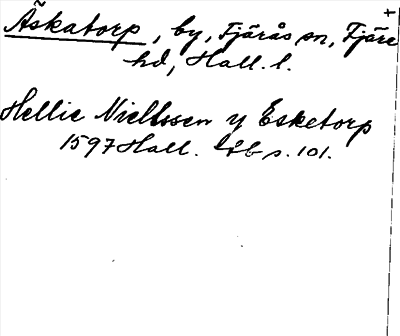 Äskatorp, by, Fjärås sn, Fjäre
hd, Hall. l.
Hellie Nielssen y Esketorp
1597 Hall. lfb s. 101.